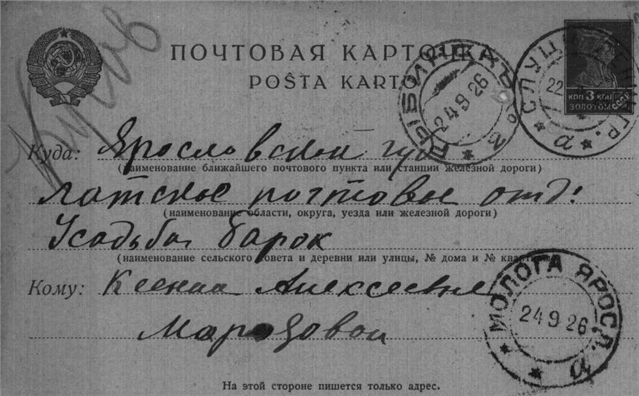 ПОЧТОВАЯ КАРТОЧКА
POŜTA KARTO
КОП 3
ЗОЛОТОМ
СЛУЦК
22
РЫБОЛ
24 9 26
Куда: Ярославской губ
(наименование ближайшего почтового пункта или станции железной дороги)
Латское почтовое отд:
(наименование области, округа, уезда или железной дороги)
Усадьба Барок
(наименование сельского совета и деревни или улицы, № дома и № кварт
Кому: Ксении Алексеевне
Морозовой
МОЛОГА ЯРОСЛ. а
24 9 26
На этой стороне пишется только адрес.